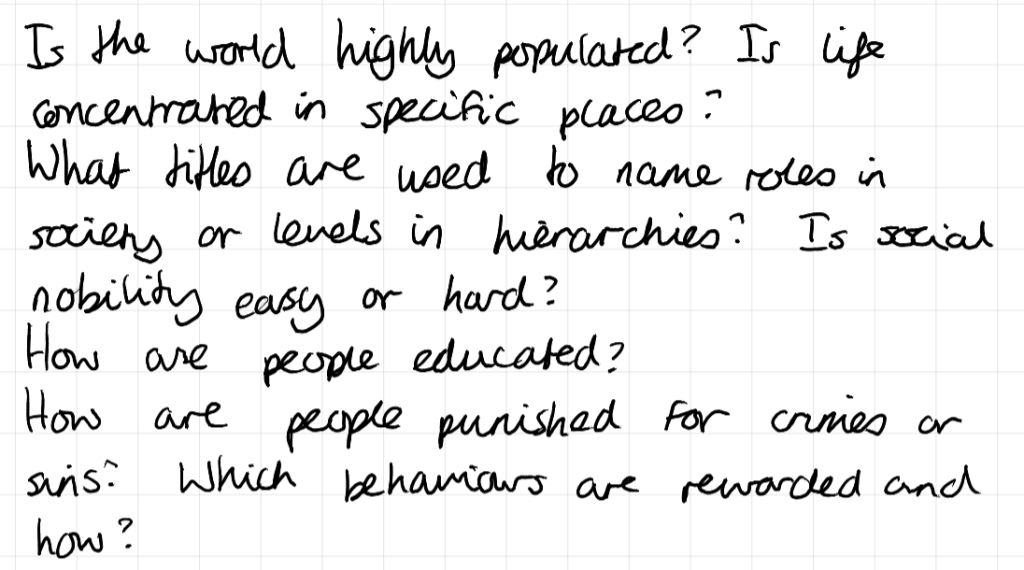 Is the world highly populated? Is life
concentrated in specific places?
What titles are used to name roles in
society or levels in hierarchies? Is social
nobility easy or hard?
How are people educated?
How are people punished for crimes or
sins? Which behaviours are rewarded and
how?